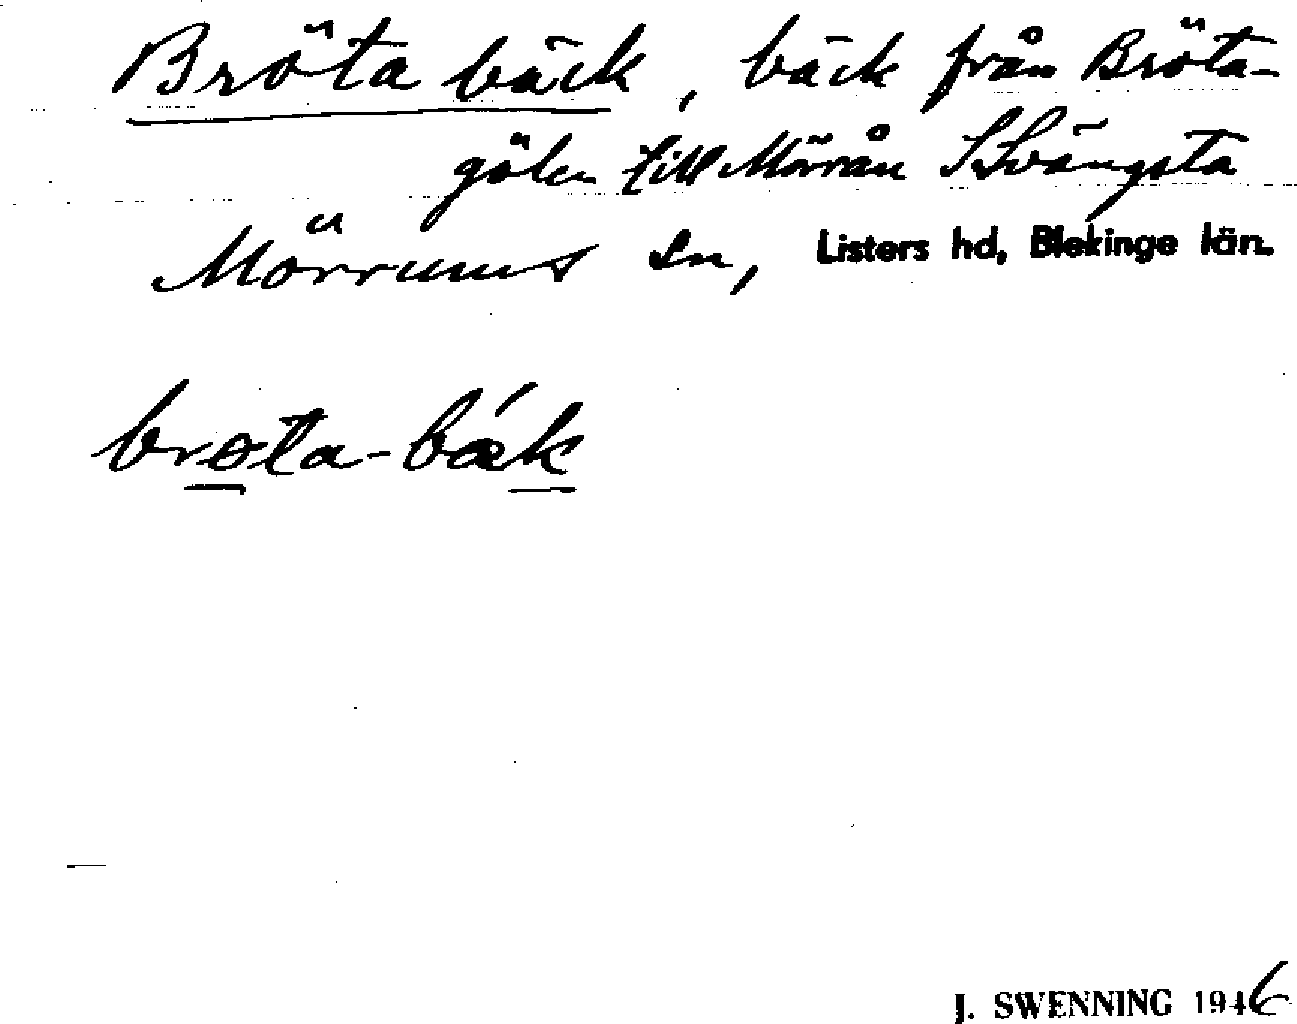 Bröta bäck, bäck från Bröta-
gölen till Mörrån S Svängsta
Mörrums sn, Listers hd, Blekinge län.
brøta-bǽk
J. SWENNING 1946